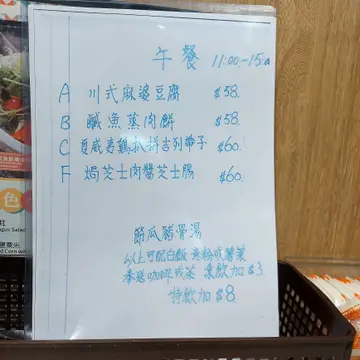 午餐 11:00-15:00
A 川式麻婆豆腐 $58.
B 鹹魚蒸肉餅 $58.
C 夏威夷雞扒拼吉列帶子 $60.
F 焗芝士肉醬芝士腸 $60.
節瓜豬骨湯
以上可配白飯 意粉或薯菜
奉送咖啡或茶 凍飲加$3
特飲加$8
色
gus Salad
粟米
d Corn wi